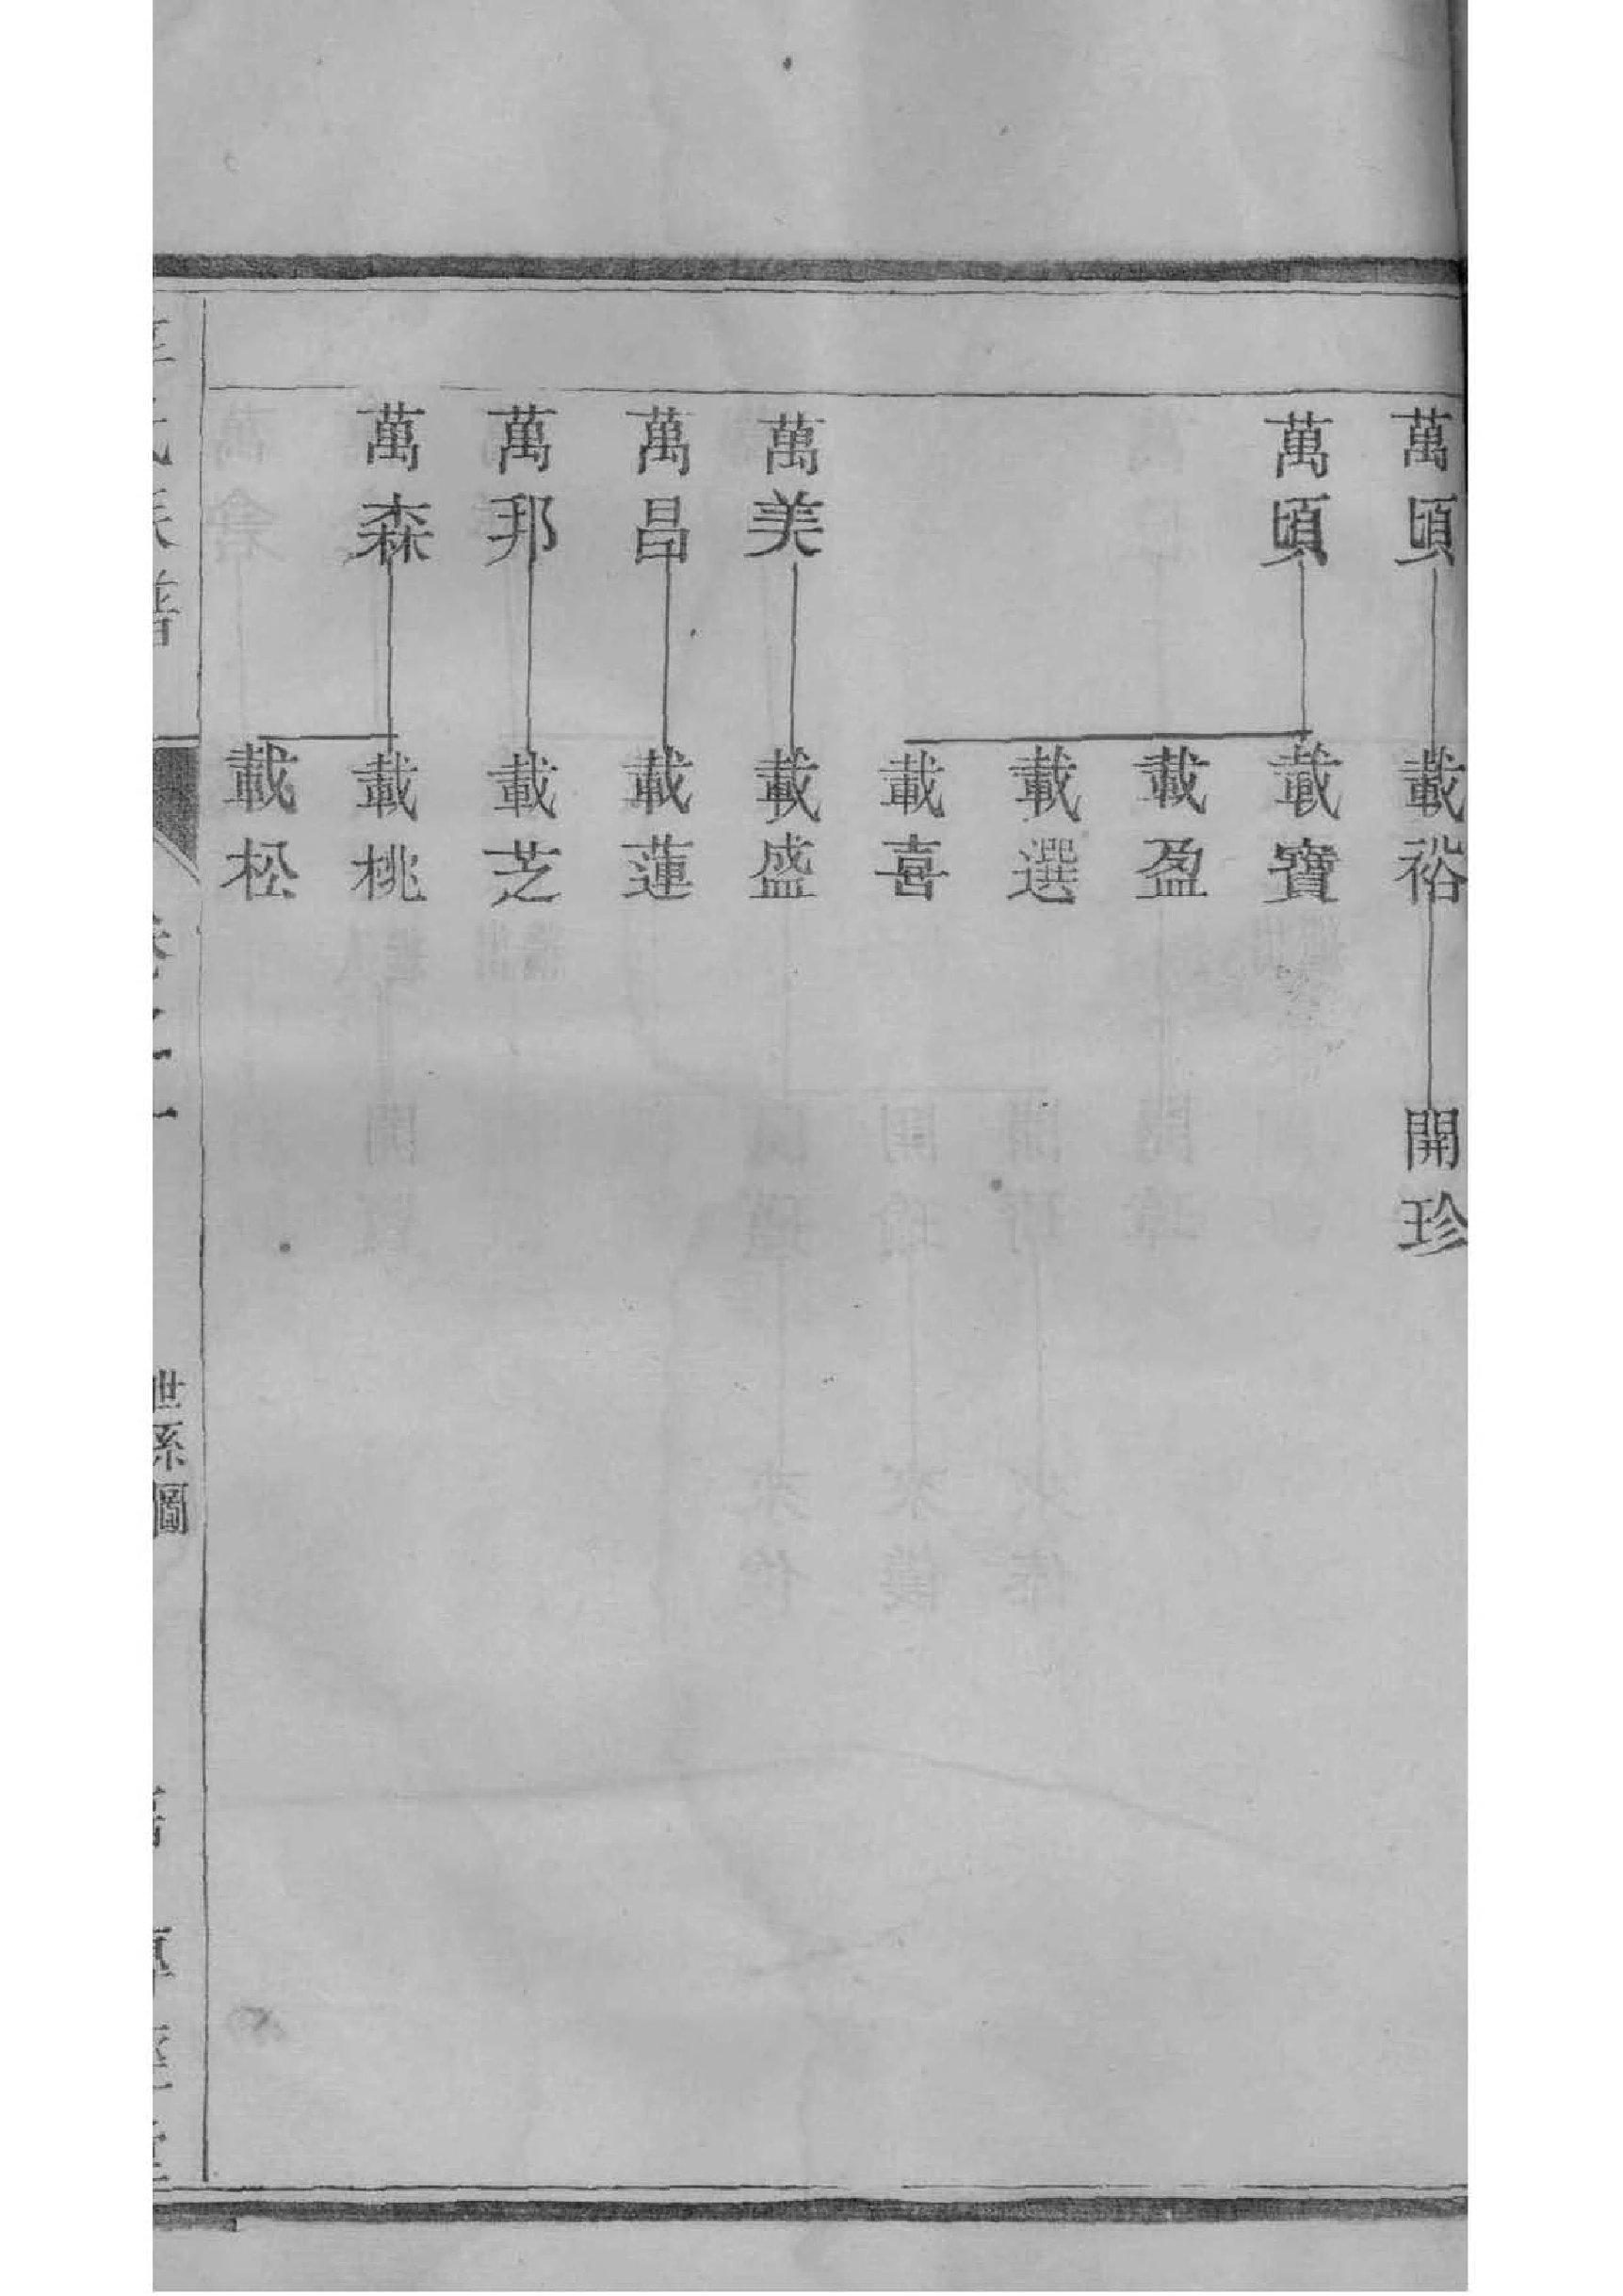 萬頃 載裕 開珍
萬頃 載寶
載盈
載選
載喜
萬美 載盛
萬昌 載蓮
萬邦 載芝
萬森 載桃
載松
世系圖